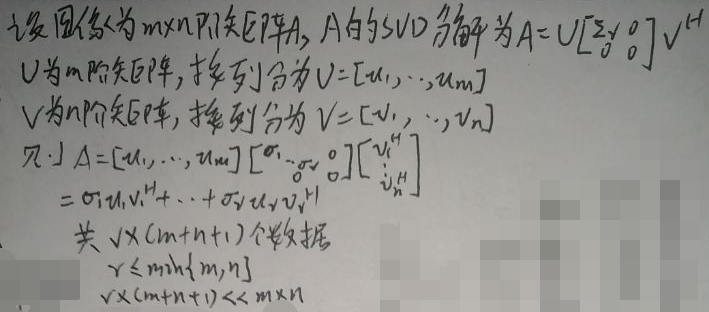 设图像为m×n阶矩阵A, A的SVD分解为A=U[Σr 0 0 0]V^H
U为m阶矩阵, 按列分为U=[u1,…,um]
V为n阶矩阵, 按列分为V=[v1,…,vn]
则A=[u1,…,um][σ1 … σr 0 0 0][v1^H ⋮ vn^H]
=σ1u1v1^H+…+σrurvr^H
共r×(m+n+1)个数据
r≤min{m,n}
r×(m+n+1)<<m×n